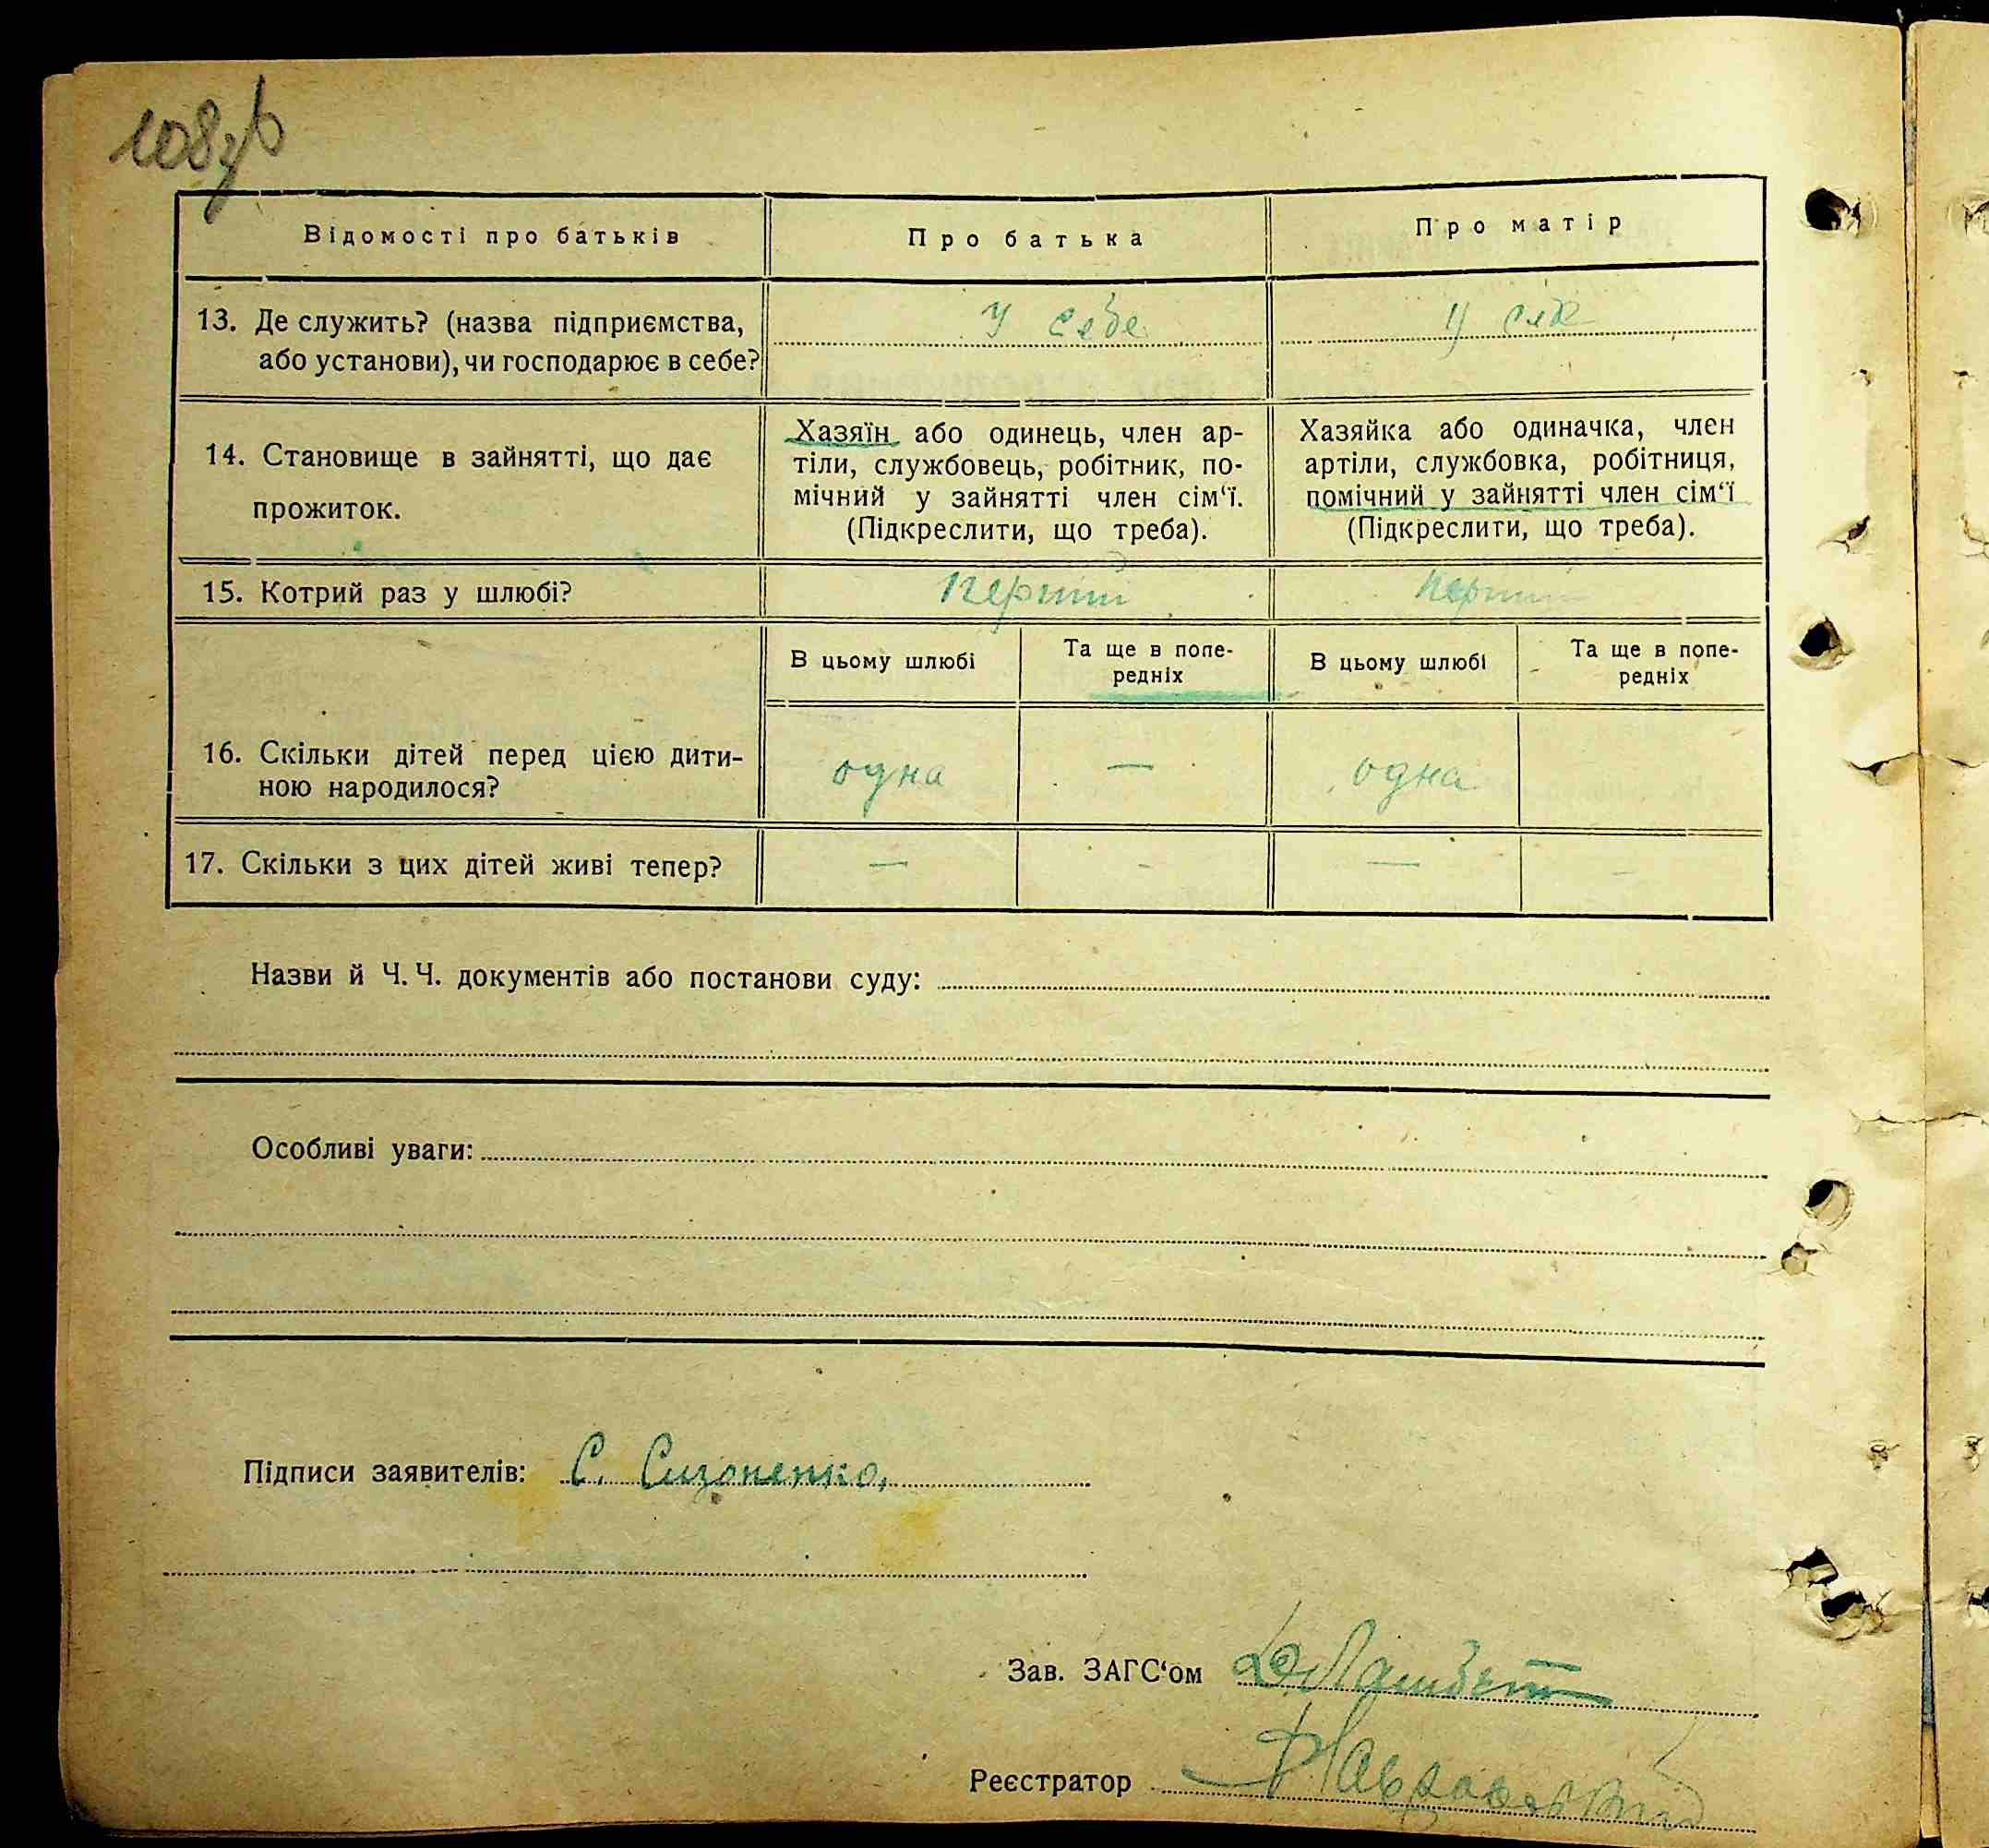 108зв
Відомості про батьків Про батька Про матір
13. Де служить? (назва підприємства, У себе У себе
або установи), чи господарює в себе?
14. Становище в зайнятті, що дає
прожиток.
Хазяїн або одинець, член ар-
тіли, службовець, робітник, по-
мічний у зайнятті член сім‘ї.
(Підкреслити, що треба).
Хазяйка або одиначка, член
артіли, службовка, робітниця,
помічний у зайнятті член сім‘ї
(Підкреслити, що треба).
15. Котрий раз у шлюбі? перший перший
В цьому шлюбі
Та ще в попе-
редніх
В цьому шлюбі
Та ще в попе-
редніх
16. Скільки дітей перед цією дити-
ною народилося?
одна — одна
17. Скільки з цих дітей живі тепер? — - —
Назви й Ч. Ч. документів або постанови суду:
Особливі уваги:
Підписи заявителів: С. Сизоненко.
Зав. ЗАГС‘ом
Реєстратор